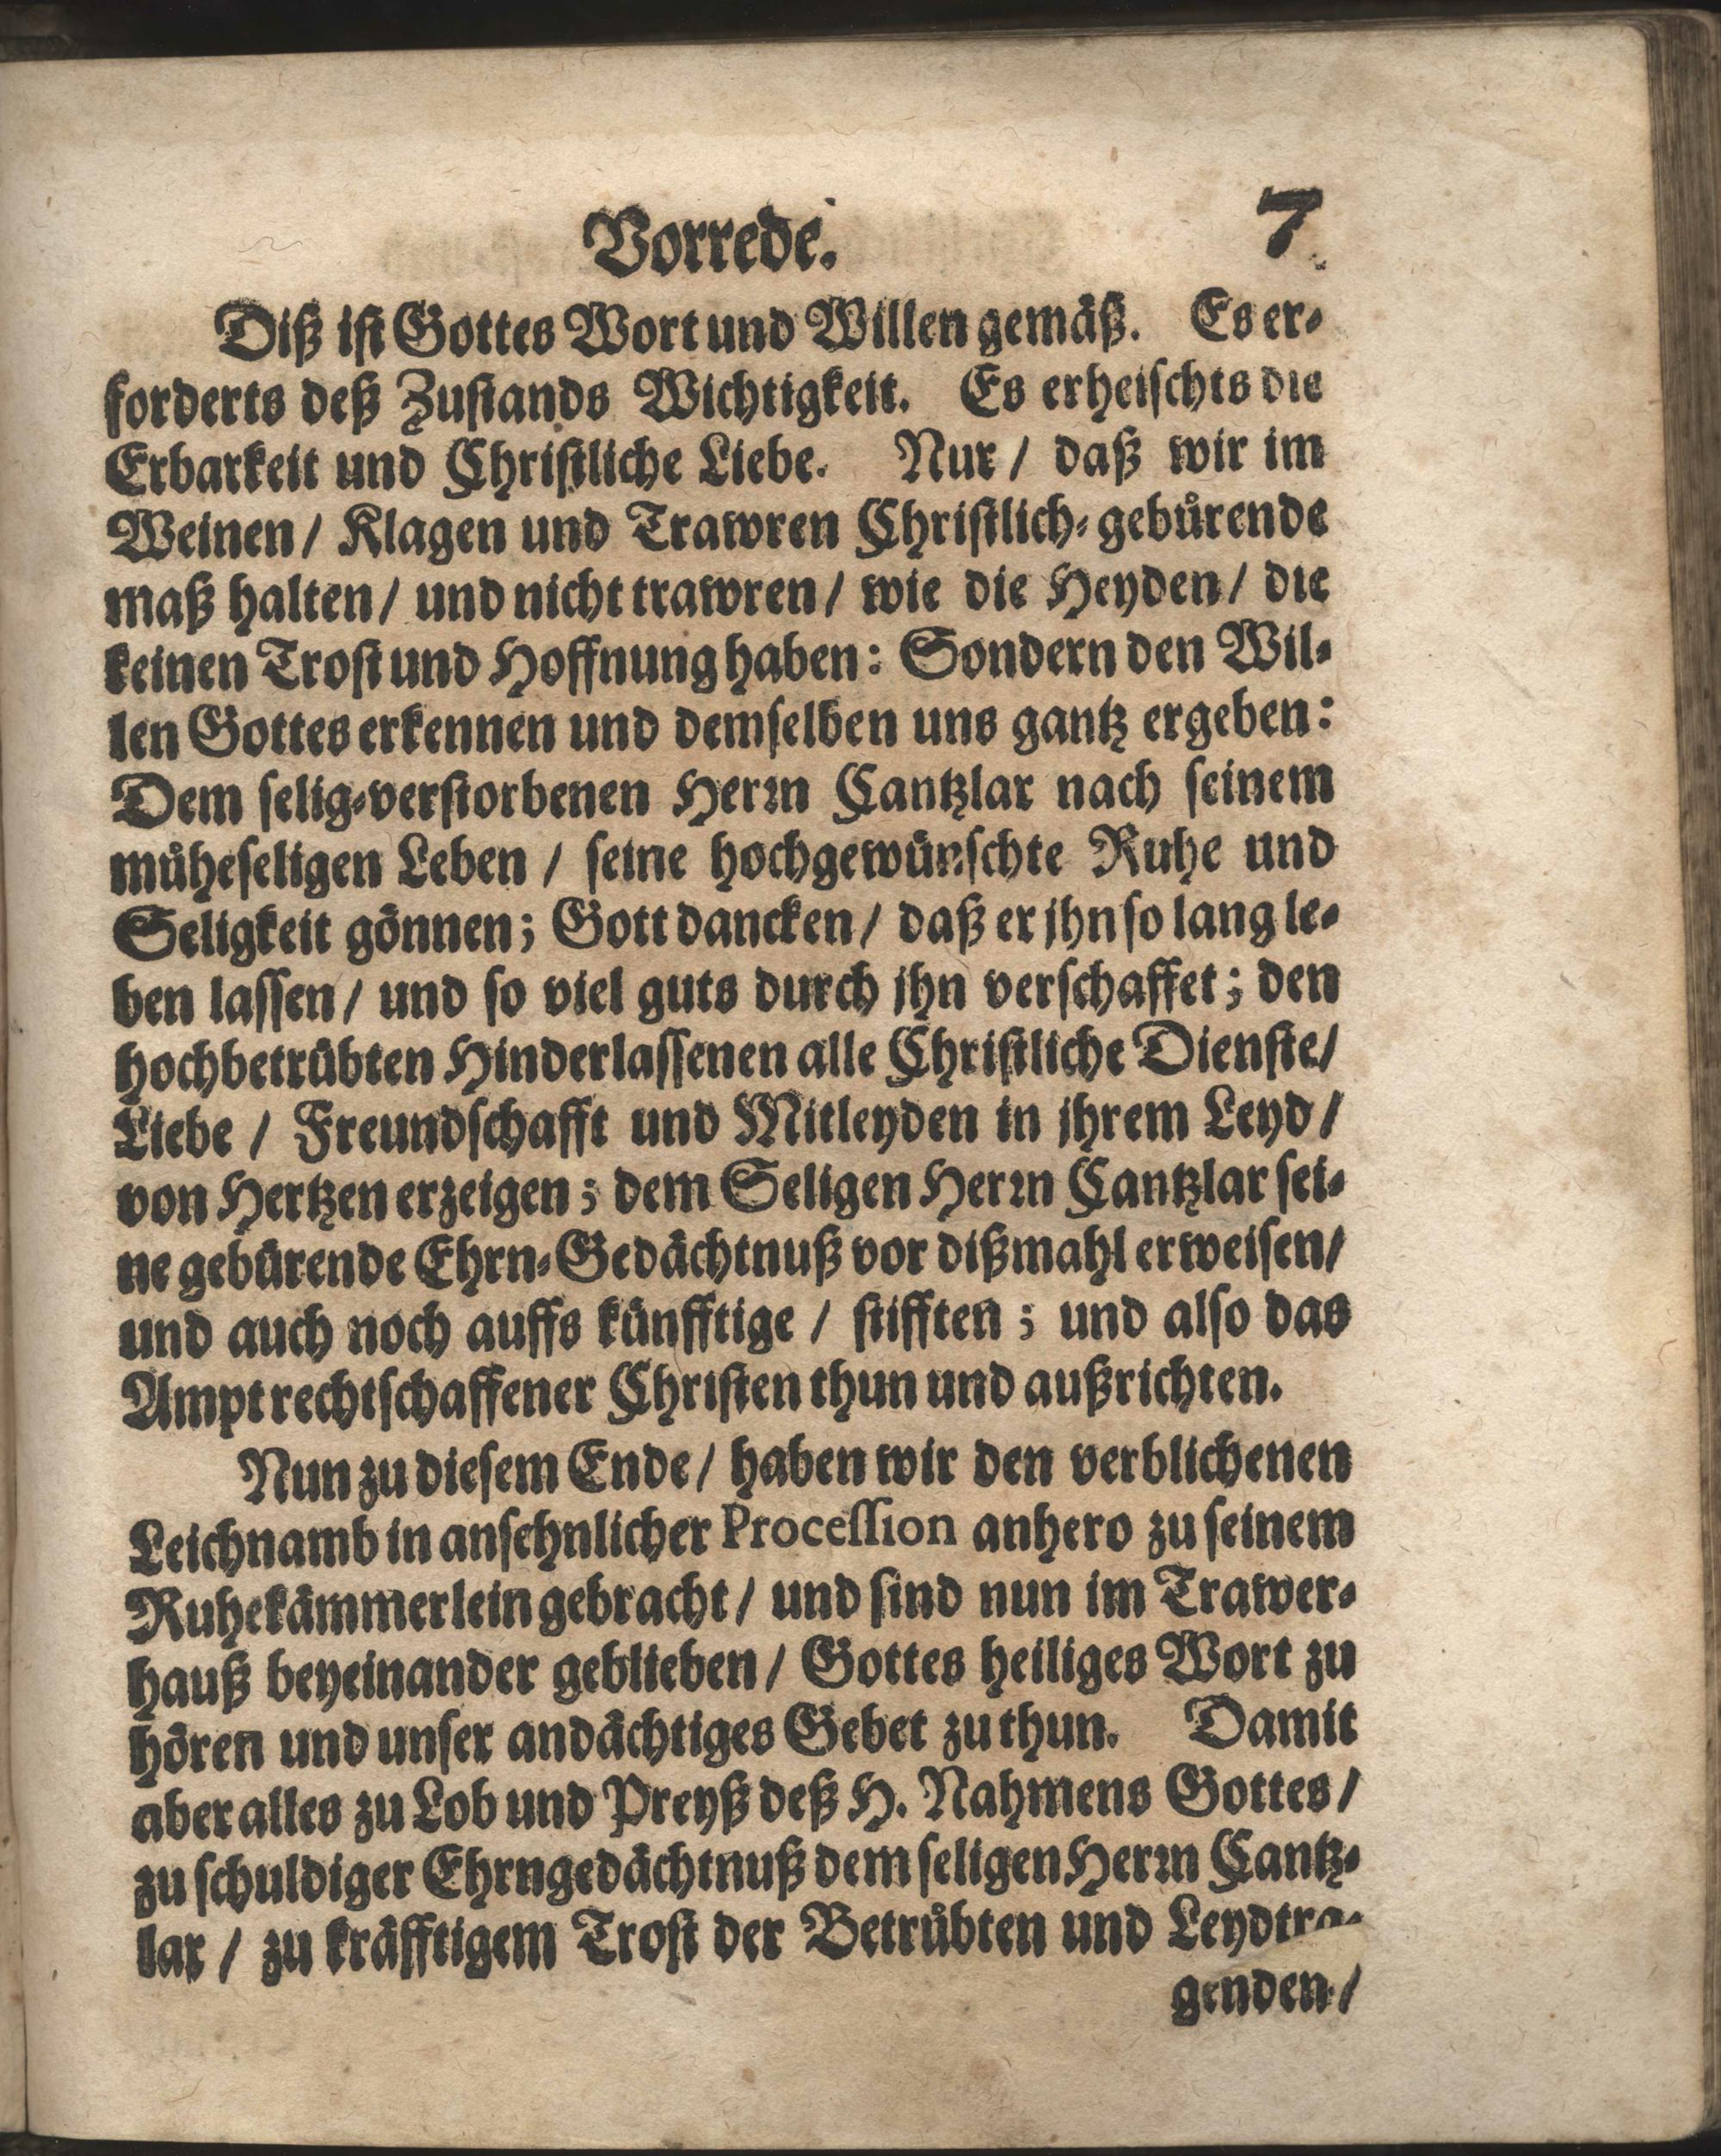 Vorrede. 7
Diß ist Gottes Wort und Willen gemäß. Es er-
forderts deß Zustands Wichtigkeit. Es erheischts die
Erbarkeit und Christliche Liebe. Nur / daß wir im
Weinen / Klagen und Trawren Christlich-gebürende
maß halten / und nicht trawren / wie die Heyden / die
keinen Trost und Hoffnung haben: Sondern den Wil-
len Gottes erkennen und demselben uns gantz ergeben:
Dem selig-verstorbenen Herrn Cantzlar nach seinem
müheseligen Leben / seine hochgewünschte Ruhe und
Seligkeit gönnen; Gott dancken / daß er jhn so lang le-
ben lassen / und so viel guts durch jhn verschaffet; den
hochbetrübten Hinderlassenen alle Christliche Dienste /
Liebe / Freundschafft und Mitleyden in jhrem Leyd /
von Hertzen erzeigen; dem Seligen Herrn Cantzlar sei-
ne gebürende Ehrn-Gedächtnuß vor dißmahl erweisen /
und auch noch auffs künfftige / stifften; und also das
Ampt rechtschaffener Christen thun und außrichten.
Nun zu diesem Ende / haben wir den verblichenen
Leichnamb in ansehnlicher Procession anhero zu seinem
Ruhekämmerlein gebracht / und sind nun im Trawer-
hauß beyeinander geblieben / Gottes heiliges Wort zu
hören und unser andächtiges Gebet zu thun. Damit
aber alles zu Lob und Preyß deß H. Nahmens Gottes /
zu schuldiger Ehrngedächtnuß dem seligen Herrn Cantz-
lar / zu kräfftigem Trost der Betrübten und Leydtra-
genden /